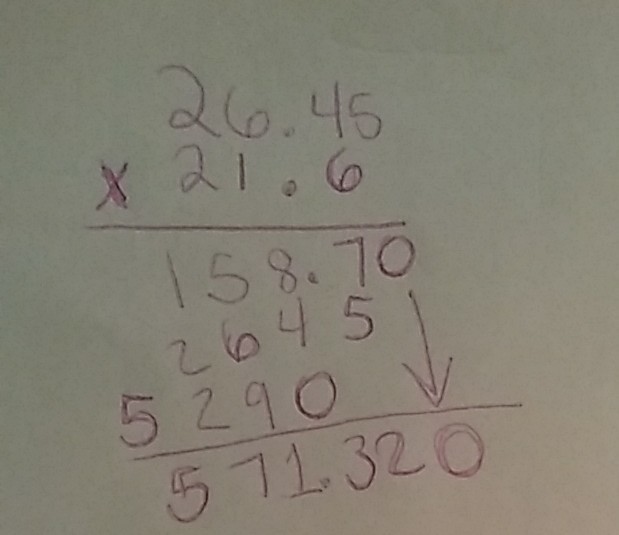 26.45
x 21.6
158.70
2645
5290
571.320